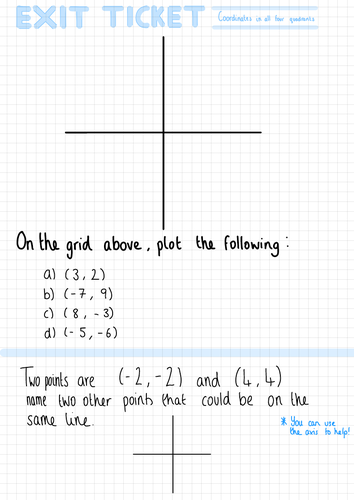 EXIT TICKET
Coordinates in all four quadrants
On the grid above, plot the following:
a) (3, 2)
b) (-7, 9)
c) (8, -3)
d) (-5, -6)
Two points are (-2, -2) and (4, 4)
name two other points that could be on the
same line.
* You can use
the axis to help!